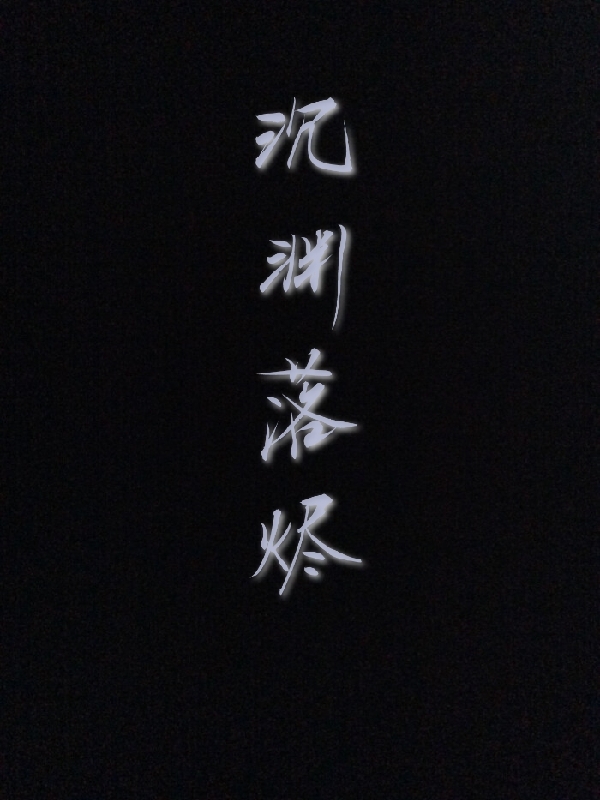 沉渊落烬